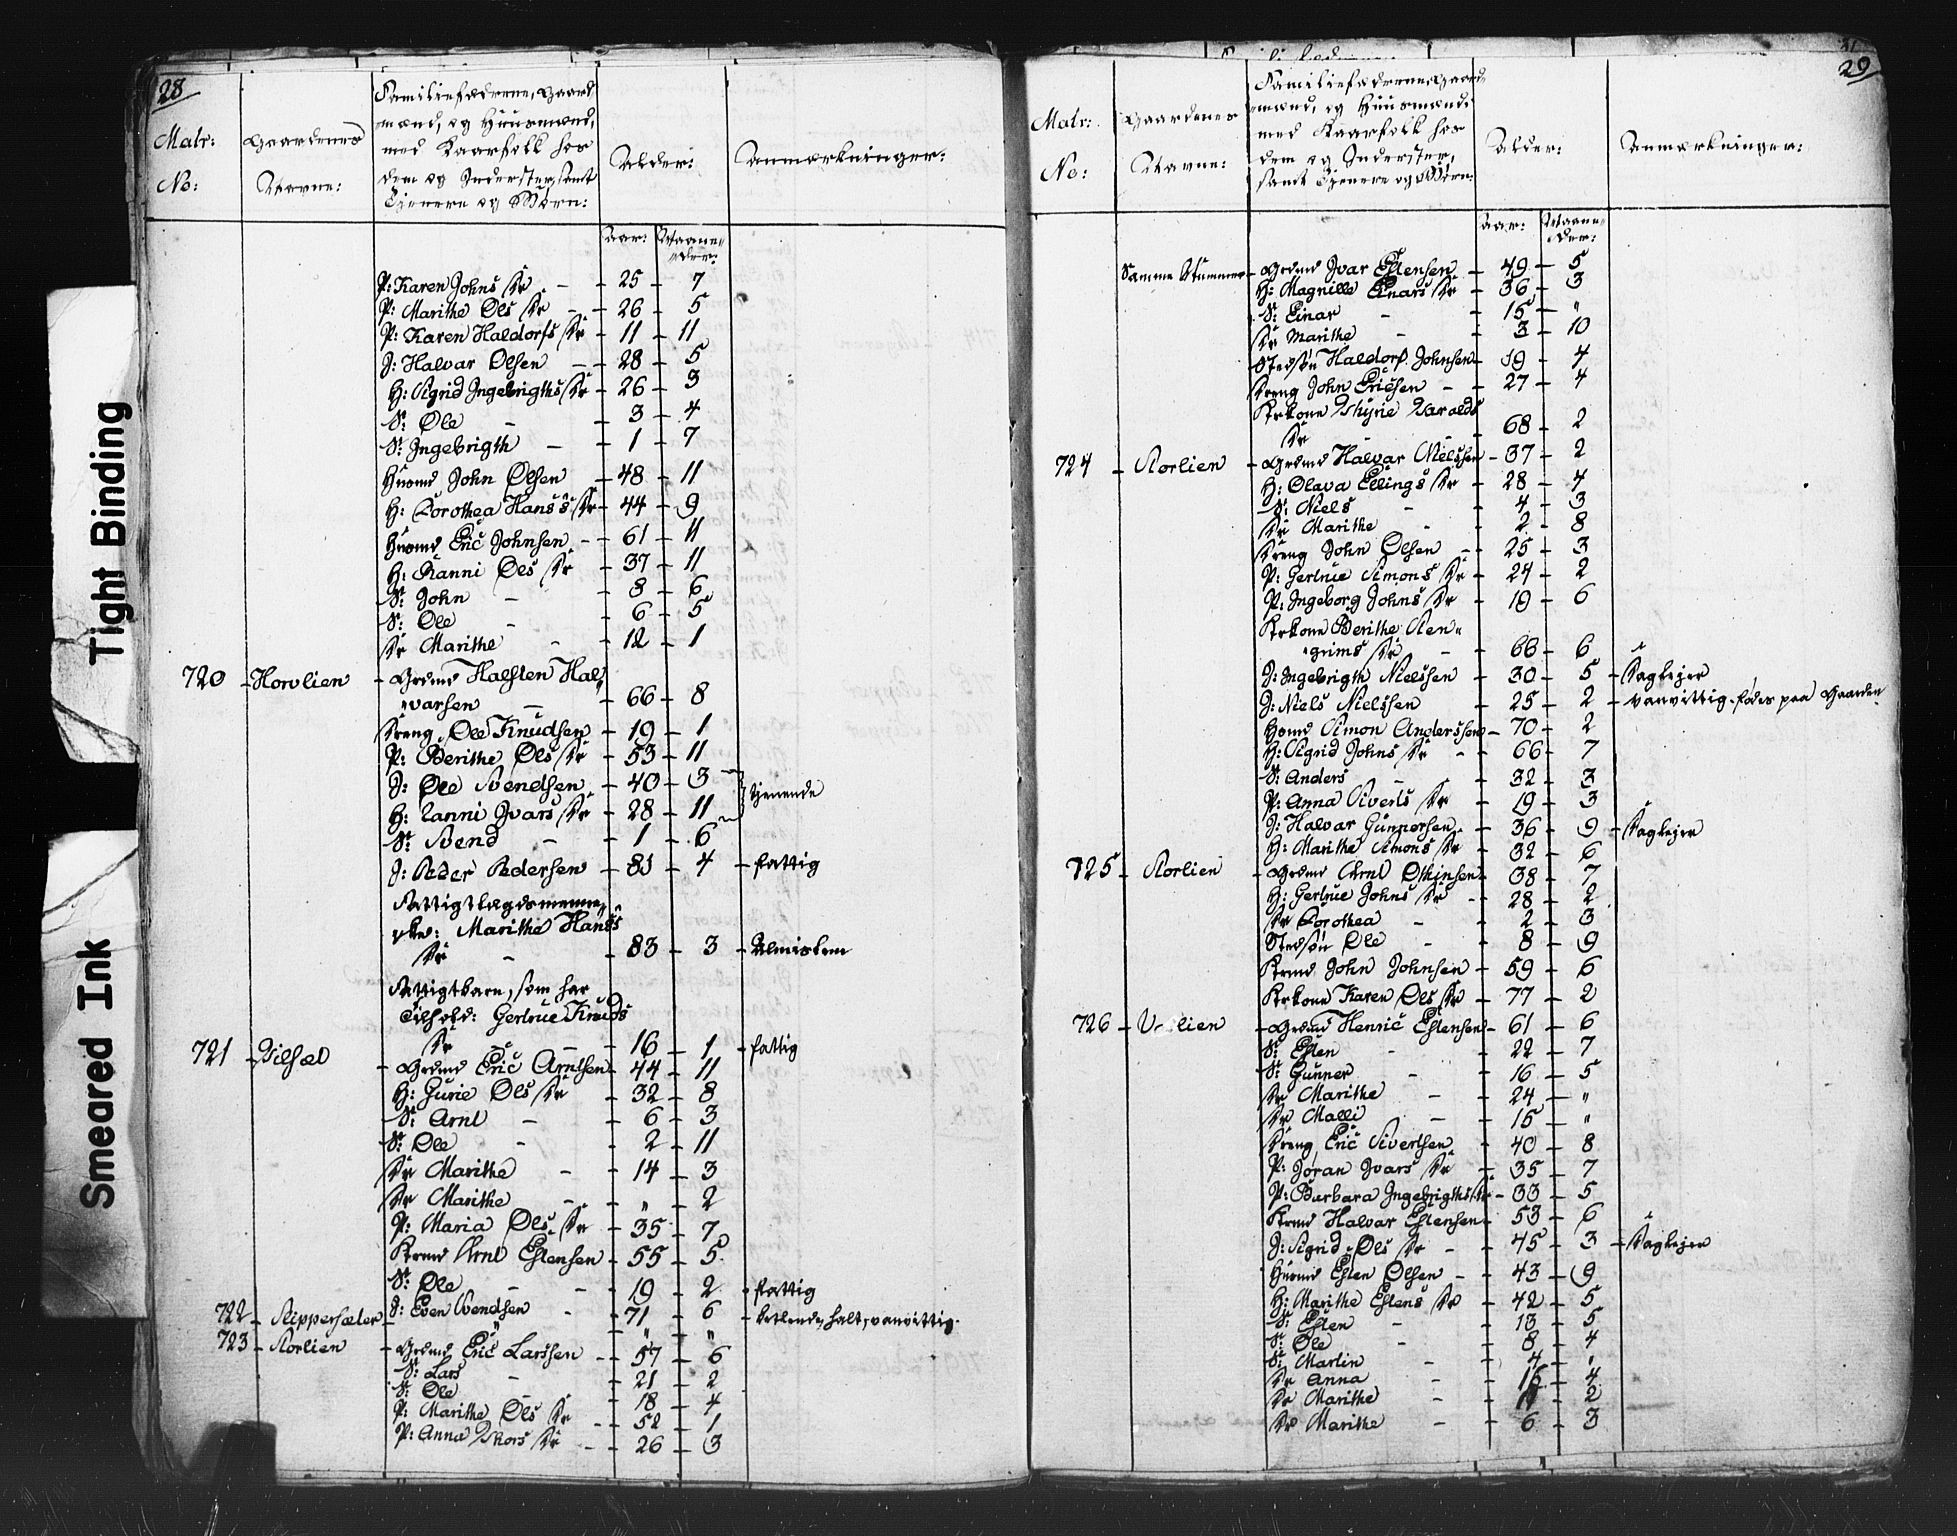 Tight Binding
Smeared Ink
28
Matr: No:
Gaardenes Navne:
Familiefædrene, Gaard
mænd, og Huusmænd,
med Kaarfolk hos
dem og Inderster, samt
Tjenere og Børn:
Alder:
Anmærkninger:
Aar: Maane-
der:
P: Karen Johns Dr - 25 - 7
P: Marithe Ols Dr - 26 - 5
P: Karen Haldorss Dr - 11 - 11
J: Halvar Olsen - 28 - 5
H: Sigrid Ingebrigths Dr - 26 - 3
S: Ole - 3 - 4
S: Ingebrigth - 1 - 7
Huusmd John Olsen - 48 - 11
H: Dorothea Hans's Dr - 44 - 9
Huusmd Eric Johnsen - 61 - 11
H: Ranni Ols Dr - 37 - 11
S: John - 8 - 6
S: Ole - 6 - 5
Dr Marithe - 12 - 1
720 - Hovlien - Grdmd Halsten Hal
varsen - 66 - 8
Dreng Ole Knudsen - 19 - 1
P: Berithe Ols Dr - 53 - 11
J: Ole Svendsen - 40 - 3
H: Ranni Ivars Dr - 28 - 11 } tjenende
S: Svend - 1 - 6
J: Peder Pedersen - 81 - 4 - fattig
Fattiglægdsmenne-
ske: Marithe Hans's
Dr - 83 - 3 - Almislem
Fattigtbarn, som har
Tilhold: Gertrue Knuds
Dr - 16 - 1 - fattig
721 - Vilsæt - Grdmd Eric Arntsen - 44 - 11
H: Gurie Ols Dr - 32 - 8
S: Arnt - 6 - 3
S: Ole - 2 - 11
Dr Marithe - 14 - 3
Dr Marithe - " - 2
P: Maria Ols Dr - 35 - 7
Krmd Arnt Estensen - 55 - 5
S: Ole - 19 - 2 - fattig
722 - Skippersæter J: Even Svendsen - 71 - 6 - betlende, halt, vanvittig.
" " "
723 - Storlien - Grdmd Eric Larssen - 57 - 6
S: Lars - 21 - 2
S: Ole - 18 - 4
P: Marithe Ols Dr - 52 - 1
P: Anna Thors Dr - 26 - 3
29
Matr: No:
Gaardenes Navne:
Familiefædrene, Gaard
mænd, og Huusmænd
med Kaarfolk hos
dem og Inderster,
samt Tjenere og Børn:
Alder:
Anmærkninger:
Aar: Maane-
der:
Samme Nummer - Grdmd Ivar Estensen - 49 - 5
H: Magnille Einars Dr - 36 - 3
S: Einar - 15 - "
Dr Marithe - 3 - 10
Stedsøn Haldors Johnsen - 19 - 4
Dreng John Ericsen - 27 - 4
Krkone Thyrie Haralds
Dr - 68 - 2
724 - Storlien - Grdmd Halvar Nielssen - 37 - 2
H: Olava Ellings Dr - 28 - 4
S: Niels - 4 - 3
Dr Marithe - 2 - 8
Dreng John Olsen - 25 - 3
P: Gertrue Simons Dr - 24 - 2
P: Ingeborg Johns Dr - 19 - 6
Krkone Berithe Sten-
grims Dr - 66 - 6
J: Ingebrigth Nielssen - 30 - 5 - Daglejer
J: Niels Nielssen - 25 - 2 - vanvittig. fødes paa Gaarden
Hsmd Simon Anderssen - 70 - 2
H: Sigrid Johns Dr - 66 - 7
S: Anders - 32 - 3
P: Anna Siverts Dr - 19 - 3
J: Halvar Gunnersen - 36 - 9 - Daglejer
H: Marithe Simons Dr - 32 - 6
725 - Storlien - Grdmd Arnt Othinsen - 38 - 7
H: Gertrue Johns Dr - 28 - 2
Dr Dorothea - 2 - 3
Stedsøn Ole - 8 - 9
Krmd John Johnsen - 59 - 6
Krkone Karen Ols Dr - 77 - 2
726 - lien - Grdmd Henric Estensen - 61 - 6
S: Esten - 22 - 7
S: Gunner - 16 - 5
Dr Marithe - 24 - "
Dr Malli - 15 - "
Dreng Eric Sivertsen - 40 - 8
P: Joran Ivars Dr - 35 - 7
P: Barbara Ingebrigths Dr - 33 - 5
Krmd Halvar Estensen - 53 - 6
J: Sigrid Ols Dr - 45 - 3 - Daglejer
Huusmd Esten Olsen - 43 - 9
H: Marithe Estens Dr - 42 - 5
S: Esten - 13 - 5
S: Ole - 8 - 4
S: Martin - 4 - "
Dr Anna - 16 - 4
Dr Marithe - 11 - 2
Dr Marithe - 6 - 3